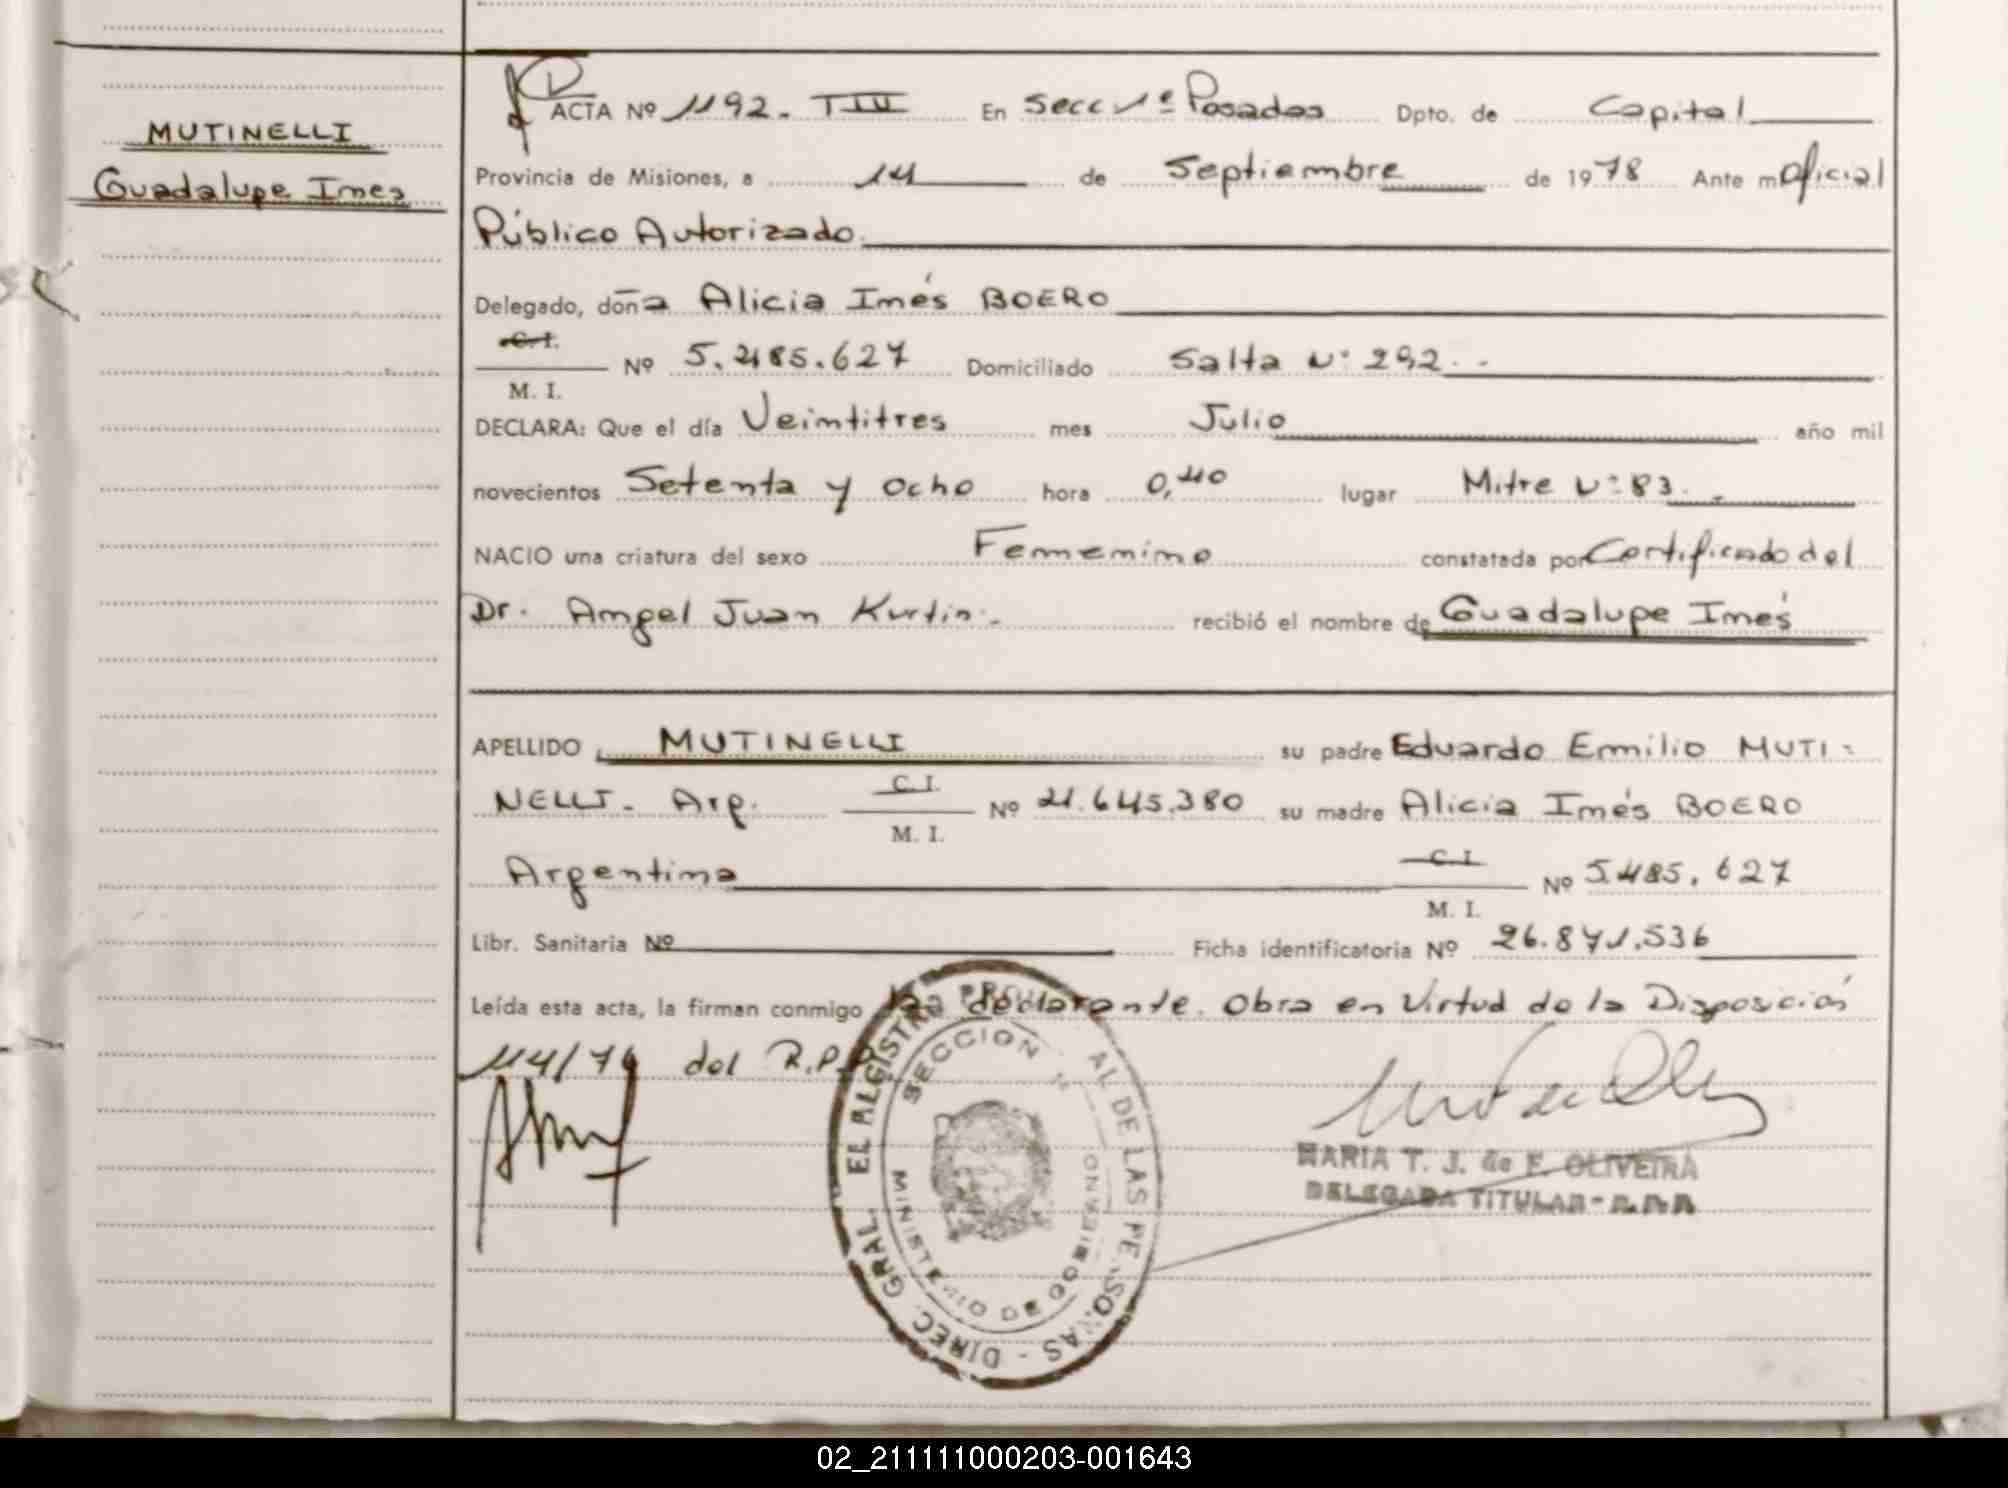 MUTINELLI
Guadalupe Ines
ACTA Nº 1192. TIII En Secc 1ª Posadas Dpto. de Capital
Provincia de Misiones, a 14 de Septiembre de 1978 Ante mi Oficial
Público Autorizado.
Delegado, doña Alicia Inés BOERO
C. I.
M. I.
Nº 5.485.627 Domiciliado Salta Nº 292.
DECLARA: Que el día Veintitres mes Julio año mil
novecientos Setenta y Ocho hora 0,40 lugar Mitre Nº 83.
NACIO una criatura del sexo Femenino constatada por Certificado del
Dr. Angel Juan Kurtin. recibió el nombre de Guadalupe Inés
APELLIDO MUTINELLI su padre Eduardo Emilio MUTI-
NELLI. Arg. C. I. M. I. Nº 21.645.380 su madre Alicia Inés BOERO
Argentina C. I. M. I. Nº 5.485.627
Libr. Sanitaria Nº Ficha identificatoria Nº 26.871.536
Leída esta acta, la firman conmigo la declarante. Obra en Virtud de la Disposición
114/76 del R.P.P.
SECCION 1ª
MINISTERIO DE GOBIERNO
DIREC. GRAL. DE LAS PERSONAS
MARIA T. J. de F. OLIVEIRA
DELEGADA TITULAR - R.P.P.
02_211111000203-001643